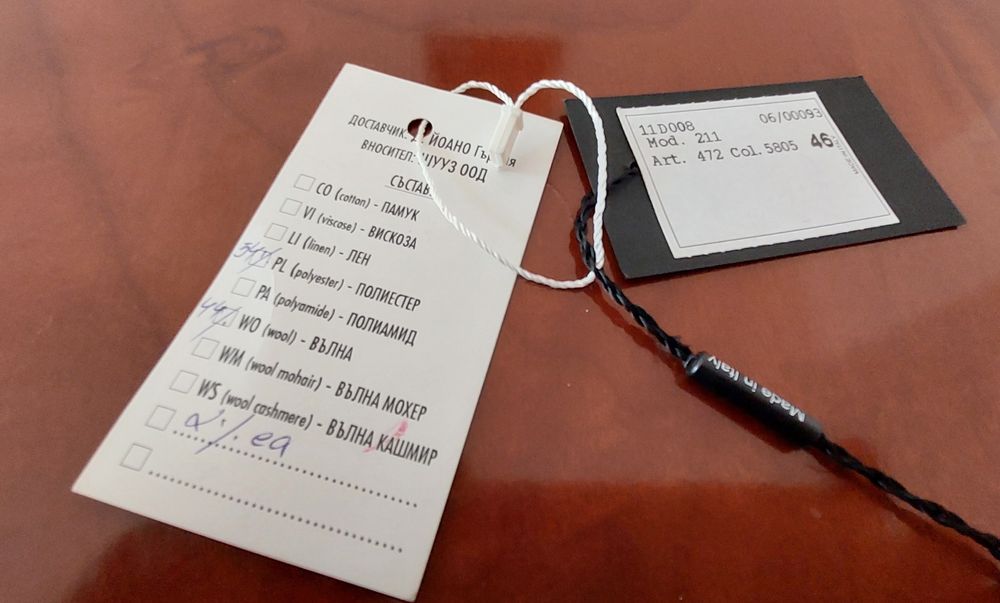 ДОСТАВЧИК: ЙОАНО
ВНОСИТЕЛ: ШУУЗ ООД
СЪСТАВ
CO (cotton) - ПАМУК
VI (viscose) - ВИСКОЗА
LI (linen) - ЛЕН
54% PL (polyester) - ПОЛИЕСТЕР
PA (polyamide) - ПОЛИАМИД
44% WO (wool) - ВЪЛНА
WM (wool mohair) - ВЪЛНА МОХЕР
WS (wool cashmere) - ВЪЛНА КАШМИР
2% ea
11D008 06/00093
Mod. 211
Art. 472 Col. 5805 46
MADE IN ITALY
Made in Italy